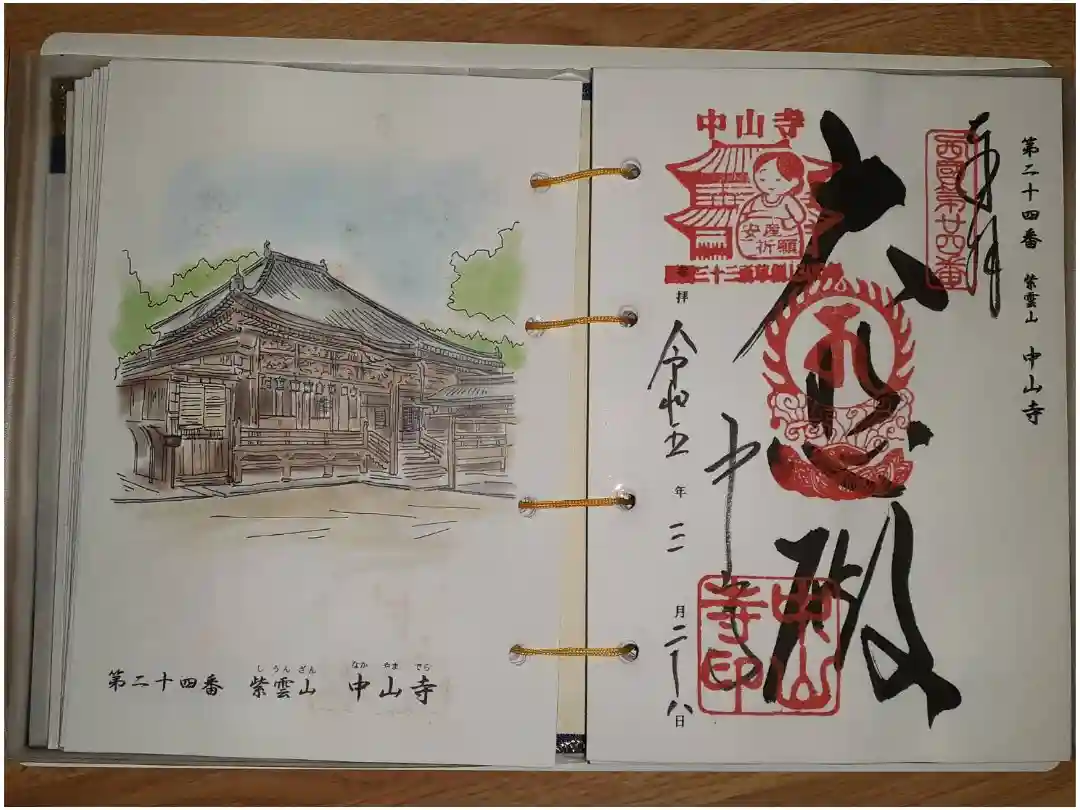 しうんざん なか やま でら
第二十四番 紫雲山 中山寺
第二十四番 紫雲山 中山寺
奉拝
西國第廿四番
大悲殿
中山寺
安産
祈願
中山寺
中山寺印
拝 令和五年三月二十八日